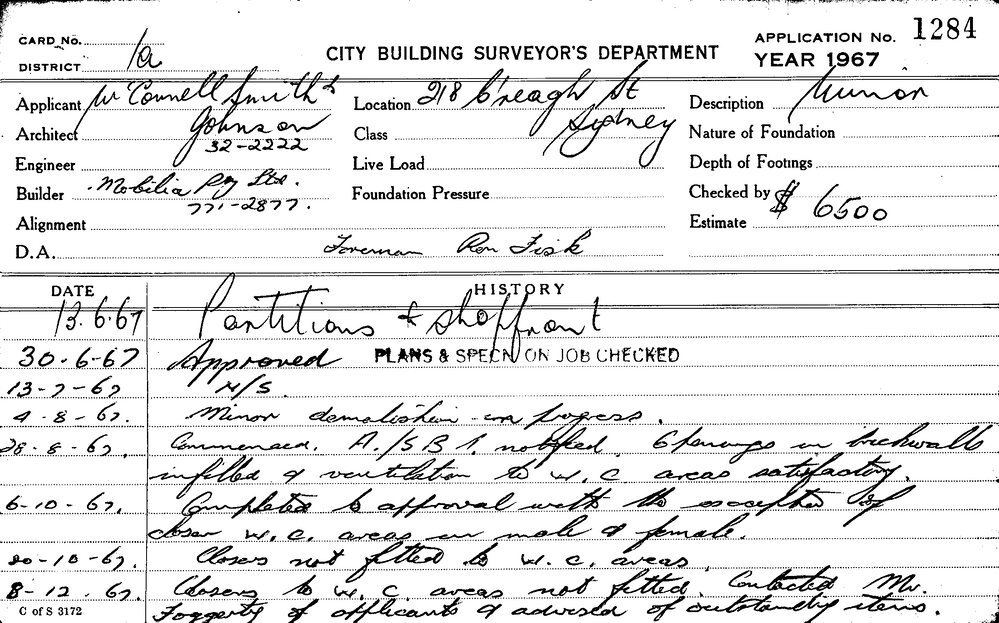 CARD No. 1a
CITY BUILDING SURVEYOR'S DEPARTMENT
APPLICATION No. 1284
DISTRICT
YEAR 1967
Applicant McConnell Smith &
Location 218 C'reagh St
Description Minor
Architect Johnson
Class Sydney
Nature of Foundation
32-2222
Engineer
Live Load
Depth of Footings
Builder Mobilia Pty Ltd.
Foundation Pressure
Checked by
771-2877.
Estimate $ 6500
Alignment
D.A. Foreman Ron Fisk
DATE HISTORY
13.6.67 Partitions & shopfront
30-6-67 Approved PLANS & SPECN ON JOB CHECKED
13-7-67 N/S.
4-8-67. Minor demolition in progress.
28-8-67. Commenced. notified. Openings in brickwalls
infilled & ventilation to w.c areas satisfactory.
6-10-67. Completed to approval with the exception of
closer w.c. areas in male & female.
20-10-67. Closers not fitted to w.c. areas.
8-12.67. Closers to w.c. areas not fitted. Contacted Mr.
C of S 3172
Foggerty of applicants & advised of outstanding items.